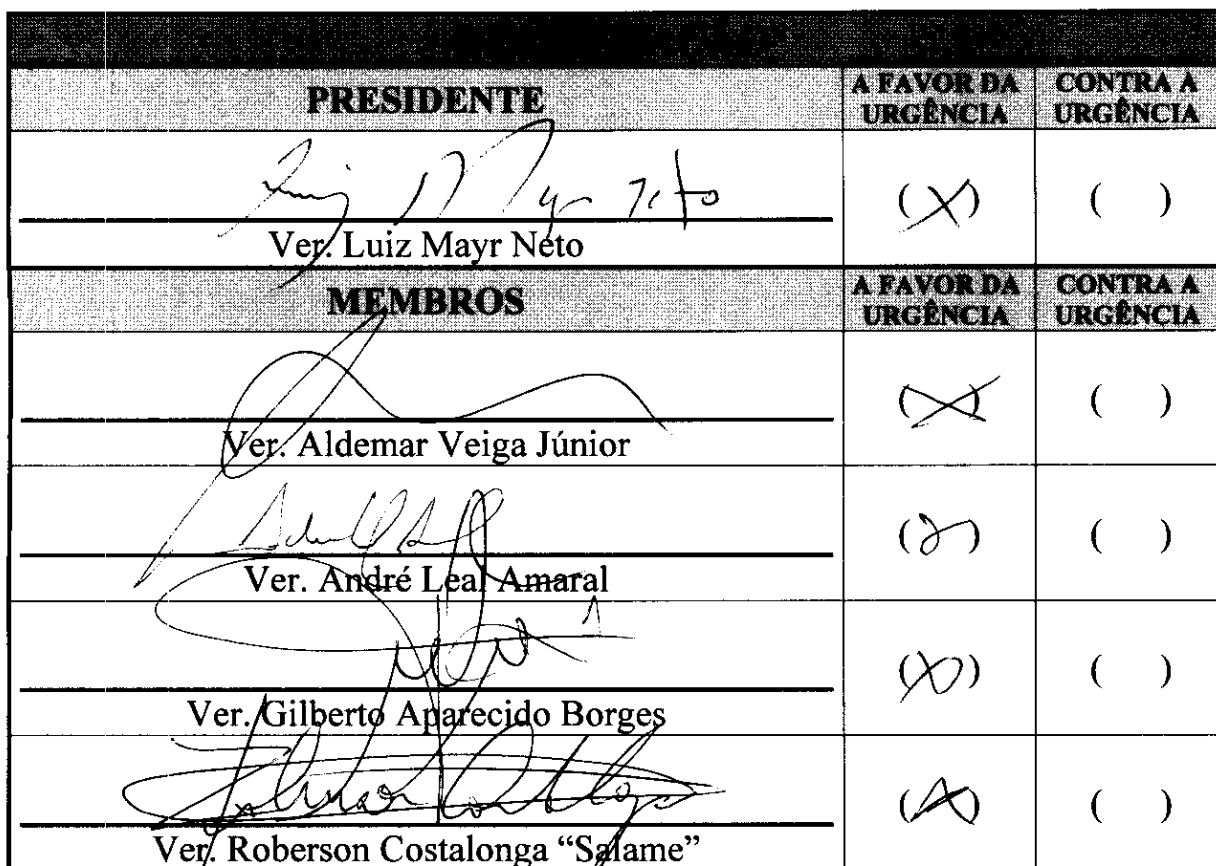 PRESIDENTE A FAVOR DA URGÊNCIA CONTRA A URGÊNCIA
(X) ( )
Ver. Luiz Mayr Neto
MEMBROS A FAVOR DA URGÊNCIA CONTRA A URGÊNCIA
(X) ( )
Ver. Aldemar Veiga Júnior
( ) ( )
Ver. André Leal Amaral
(X) ( )
Ver. Gilberto Aparecido Borges
(X) ( )
Ver. Roberson Costalonga “Salame”